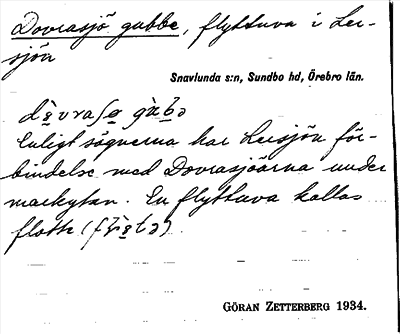 Dovrasjö gubbe, flyttuva i Ler-
sjön
Snavlunda s:n, Sundbo hd, Örebro län.
Enligt sägnerna har Lersjön för-
bindelse med Dovrasjöarna under
markytan. En flyttuva kallas
GÖRAN ZETTERBERG 1934.